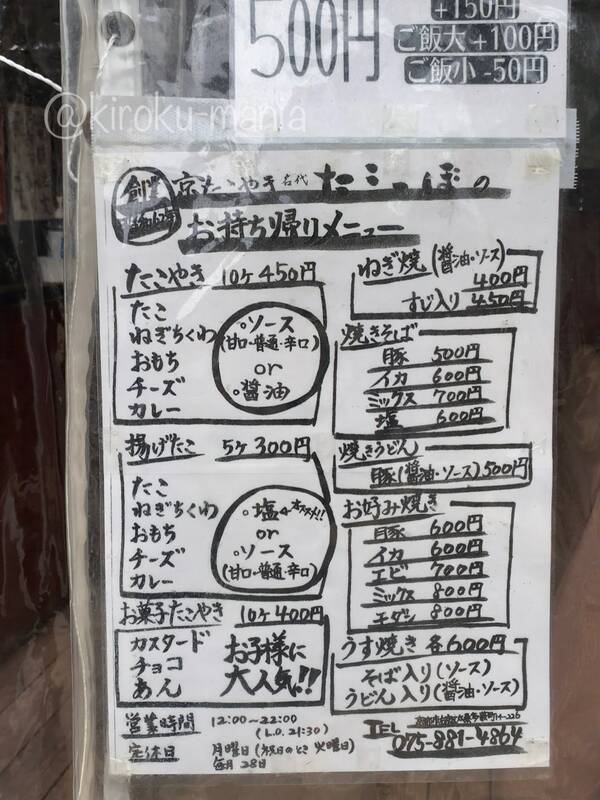 500円
+150円
ご飯大+100円
ご飯小-50円
@kiroku-mania
創業
京たこやき 名代 たこっぽの
お持ち帰りメニュー
たこやき 10ヶ 450円
たこ
ねぎちくわ
おもち
チーズ
カレー
○ソース
(甘口・普通・辛口)
or
○醤油
揚げたこ 5ヶ 300円
たこ
ねぎちくわ
おもち
チーズ
カレー
○塩←オススメ!!
or
○ソース
(甘口・普通・辛口)
お菓子たこやき 10ヶ 400円
カスタード
チョコ
あん
お子様に
大人気!!
ねぎ焼 (醤油・ソース)
400円
すじ入り 450円
焼きそば
豚 500円
イカ 600円
ミックス 700円
塩 600円
焼きうどん
豚(醤油・ソース) 500円
お好み焼き
豚 600円
イカ 600円
エビ 700円
ミックス 800円
モダン 800円
うす焼き 各600円
そば入り(ソース)
うどん入り(醤油・ソース)
営業時間 12:00~22:00
(L.O. 21:30)
定休日 月曜日(祝日のとき火曜日)
毎月28日
TEL
075-881-4864